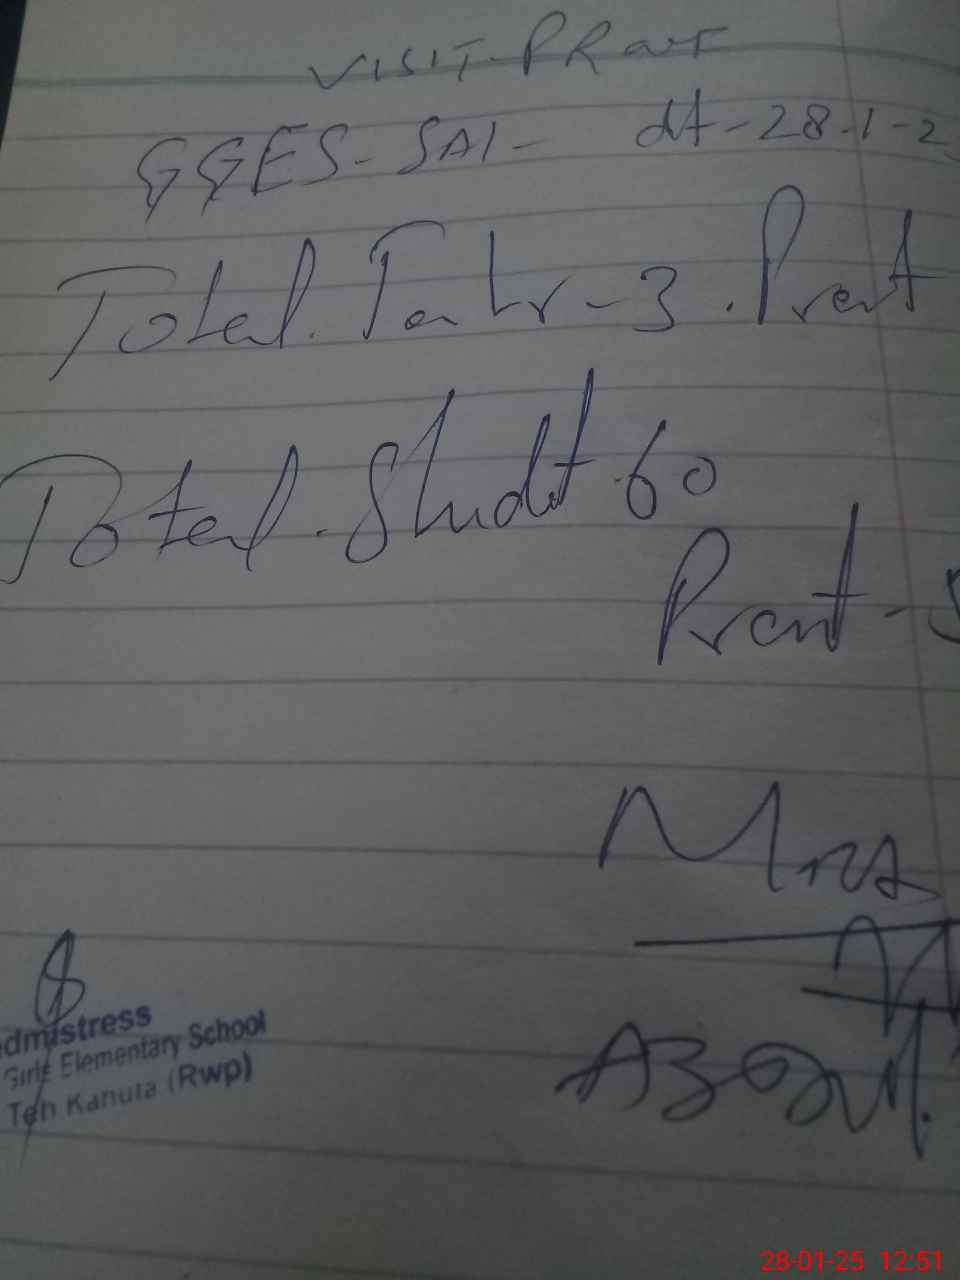 VISIT-PRovt
GGES-SAI- dt-28-1-2
Total. Tachr-3. Prent
Total. Studt 60
Prent-5
admistress
Girls Elementary School
Teh Kahuta (Rwp)
28-01-25 12:51